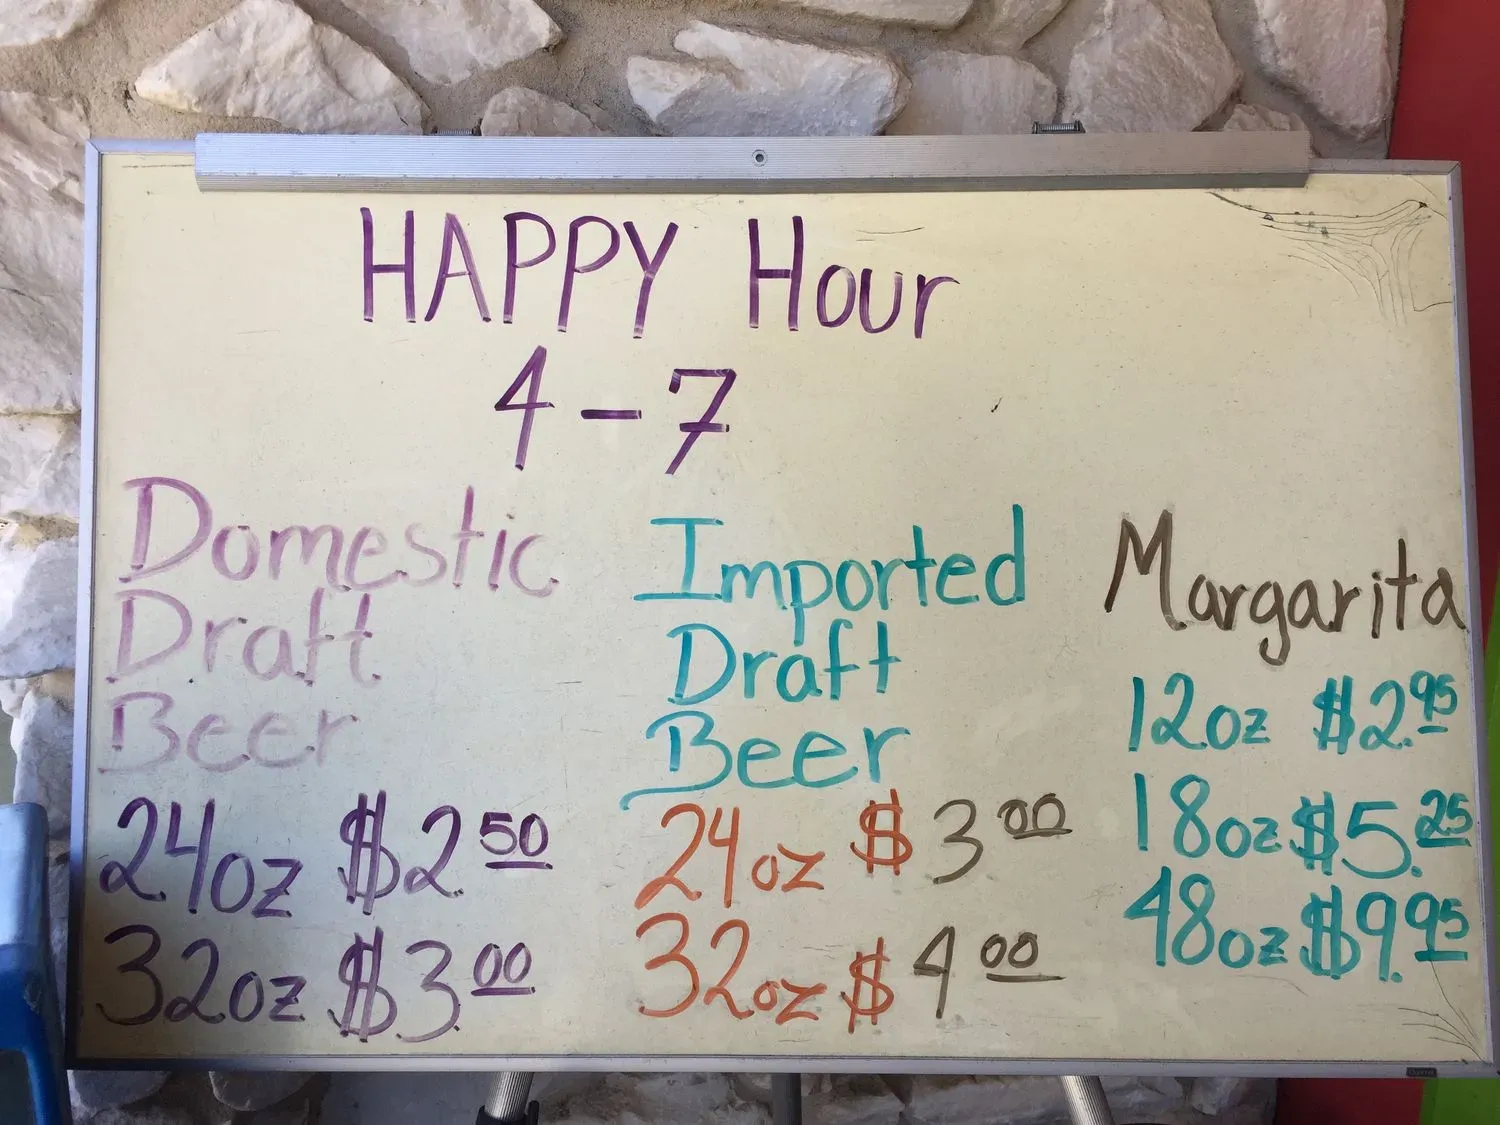 HAPPY Hour
4-7
Domestic
Draft
Beer
24oz $2.50
32oz $3.00
Imported
Draft
Beer
24oz $3 00
32oz $4 00
Margarita
12oz $2.95
18oz $5.25
48oz $9.95